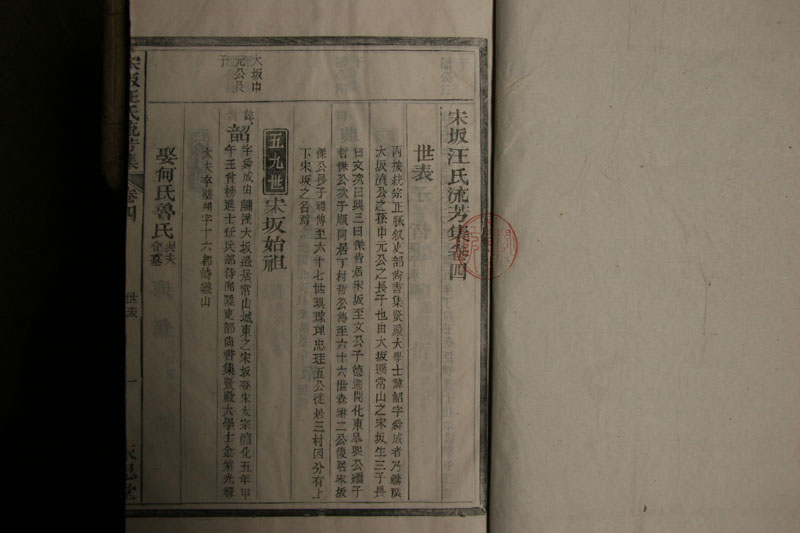 宋坂汪氏流芳集卷四
世表
丙接統宗正䇿敘吏部尚書集賢殿大學士諱韶字舜成者乃鱗溪
大坂濆公之孫申元公之長子也由大坂遷常山之宋坂生三子長
曰文次曰興三曰傑皆居宋坂至文公子德遷開化東皐興公繼子
哲傑公次子順同居丁村哲公傳至六十六世森琳二公復居宋坂
傑公長子禮傳至六十七世璵瑹理忠珏五公徙居三村因分有上
下宋坂之名焉
大坂申
元公長
子
五九世
宋坂始祖
諱韶字舜成由鱗溪大坂遷居常山城東之宋坂登宋太宗雍化五年甲
午王曾榜進士任兵部侍郎陞吏部尚書集賢殿大學士金紫光祿
大夫享壽 字十六都 山
娶何氏魯氏
與夫
合墓
宋坂汪氏流芳集
卷四
世表
一